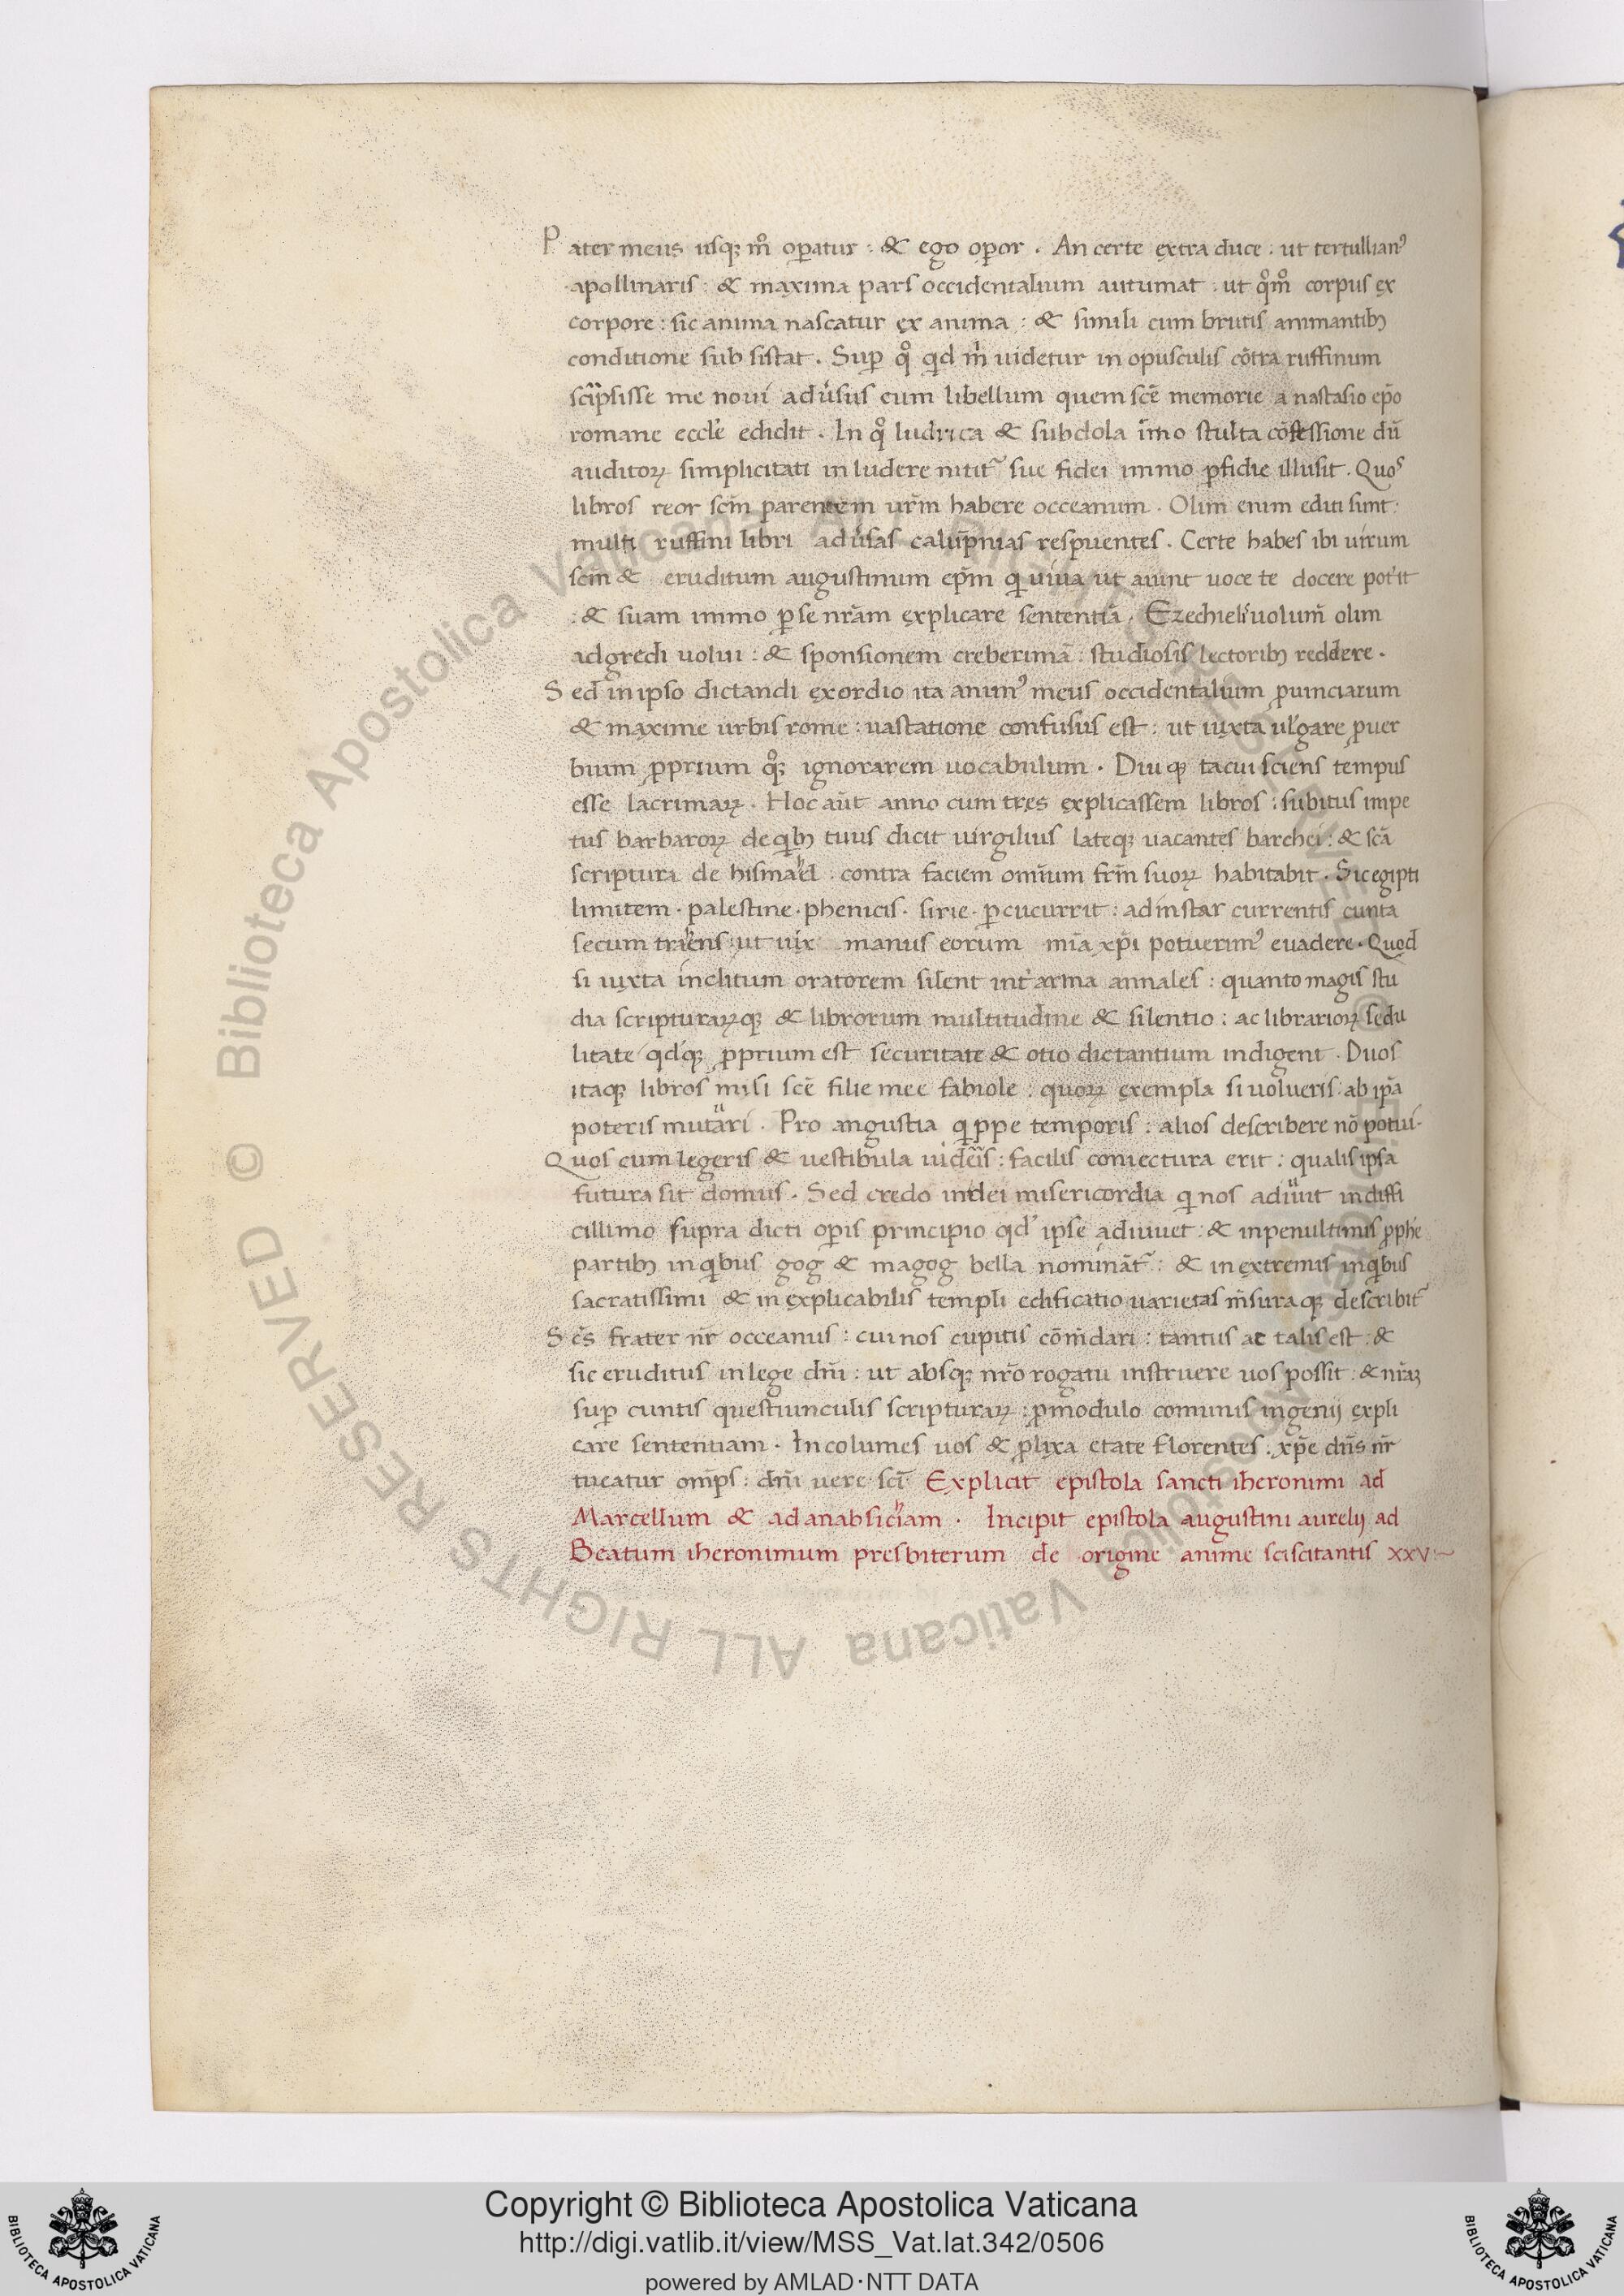 Pater meus usqȝ m̊ op̲atur : & ego op̲or . An certe extra duce : ut tertullianꝰ
apollinaris : & maxima pars occidentalium autumat : ut qͦm̊ corpus ex
corpore : sic anima nascatur ex anima : & simili cum brutis animantibꝫ
conditione sub sistat . Sup̲ qͦ qid m̍ uidetur in opusculis cõtra ruffinum
scͥpsisse me noui adu̍sus eum libellum quem scẽ memorie a nastasio ep̃o
romane eccl̃e edidit . In qͦ ludrica & subdola ĩmo stulta cõfessione dũ
auditoꝝ simplicitati in ludere nitit᷑ sue fidei immo p̲fidie illusit . Quos
libros reor scm̃ parentem ur̃m habere occeanum . Olim enim editi sunt :
multi ruffini libri adu̍sas calupnias respuentes . Certe habes ibi uirum
scm̃ & eruditum augustinum ep̃m qͥ uiua ut aiunt uoce te docere pot̍it
: & suam immo p̲ se nr̃am explicare sententiã . Ezechiel̍ uolum̃ olim
adgredi uolui : & sponsionem creberimã : studiosis lectoribꝫ reddere .
Sed in ipso dictandi exordio ita animꝰ meus occidentalium ꝓuinciarum
& maxime urbis rome : uastatione confusus est : ut iuxta ul̍gare ꝓuer
bium ꝓprium qͦqȝ ignorarem uocabulum . Diu qȝ tacui sciens tempus
esse lacrimaꝝ . Hoc aũt anno cum tres explicassem libros : subitus impe
tus barbaroꝝ de qͥbꝫ tuus dicit uirgilius lateqȝ uacantes barchei : & scã
scriptura de hismaͪel : contra faciem omñium frm̃ suoꝝ habitabit . Sic egipti
limitem . palestine . phenicis . sirie . p̲cucurrit : ad instar currentis cunta
secum traͪens : ut uix manus eorum mĩa xp̃i potuerimꝰ euadere . Quod
si iuxta inclitum oratorem silent int̍ arma annales : quanto magis stu
dia scripturaꝝqȝ & librorum multitudine & silentio : ac librarioꝝ sedu
litate qd̍qȝ ꝓprium est securitate & otio dictantium indigent . Duos
itaqȝ libros misi scẽ filie mee fabiole : quoꝝ exempla si uolueris : ab ip̃a
poteris mutuari . Pro angustia qͥppe temporis : alios describere nõ potui .
Quos cum legeris & uestibula uidẽis : facilis coniectura erit : qualis ipsa
futura sit domus . Sed credo in dei misericordia qͥ nos adiuͧit in diffi
cillimo supra dicti op̲is principio qd̍ ipse adiuuet : & in penultimis ꝓphe
partibꝫ in qͥbus gog & magog bella nominãt᷑ : & in extremis in qͥbus
sacratissimi & in explicabilis templi edificatio uarietas m̃suraqȝ describit᷑
Sc̃s frater nr̃ occeanus : cui nos cupitis cõm̃dari : tantus ac talis est : &
sic eruditus in lege dñi : ut absqȝ nr̃o rogatu instruere uos possit : & nr̃aꝫ
sup̲ cuntis questiunculis scripturaꝝ : ꝓ modulo comunis ingenij expli
care sententiam . Incolumes uos & ꝓlixa etate florentes : xp̃e dñs nr̃
tueatur om̃ps : dñi uere sci̍ Explicit epistola sancti iheronimi ad
Marcellum & ad anabsicͪiam . Incipit epistola augustini aurelij ad
Beatum iheronimum presbiterum de origine anime sciscitantis xxv
Copyright © Biblioteca Apostolica Vaticana
http://digi.vatlib.it/view/MSS_Vat.lat.342/0506
powered by AMLAD·NTT DATA
BIBLIOTECA APOSTOLICA VATICANA
BIBLIOTECA APOSTOLICA VATICANA
© Biblioteca Apostolica Vaticana ALL RIGHTS RESERVED